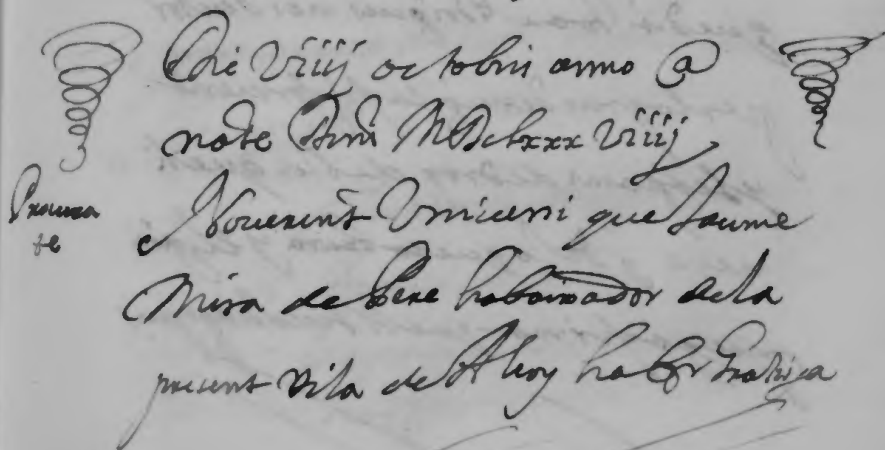 Die Viiij octobris anno @
nate Dnni MDclxxx Viiij
Procura
te
Nouerint Vniuersi que Jaume
Mira de Pere habaixador de la
present vila de Alcoy ha